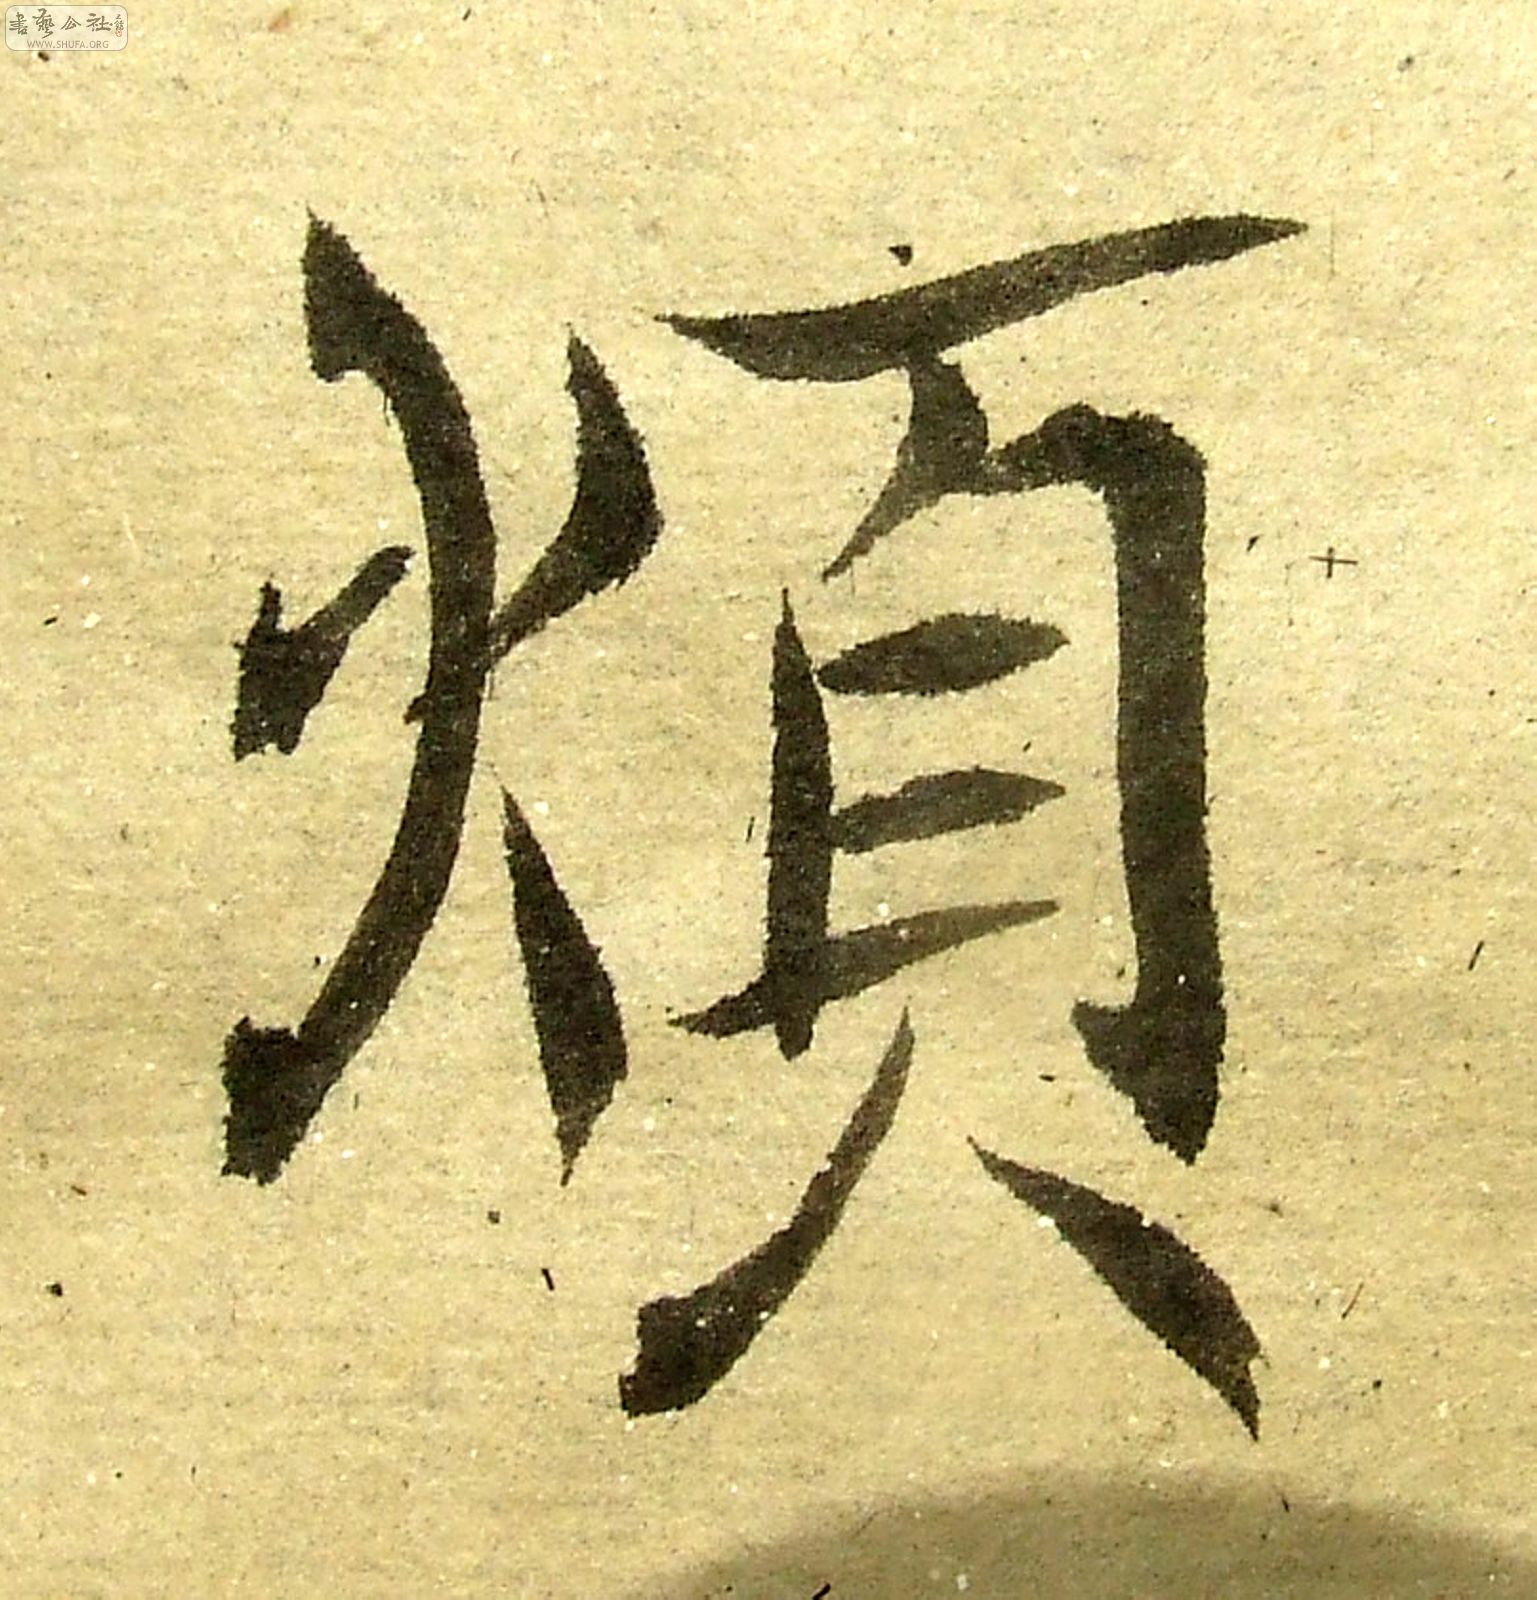 書藝公社
WWW.SHUFA.ORG
煩